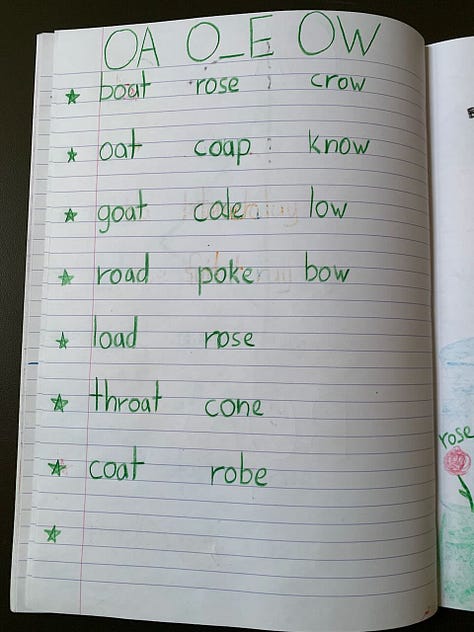 OA O_E OW
boat rose crow
oat coap know
goat colen low
road poke bow
load rose
throat cone
coat robe
rose